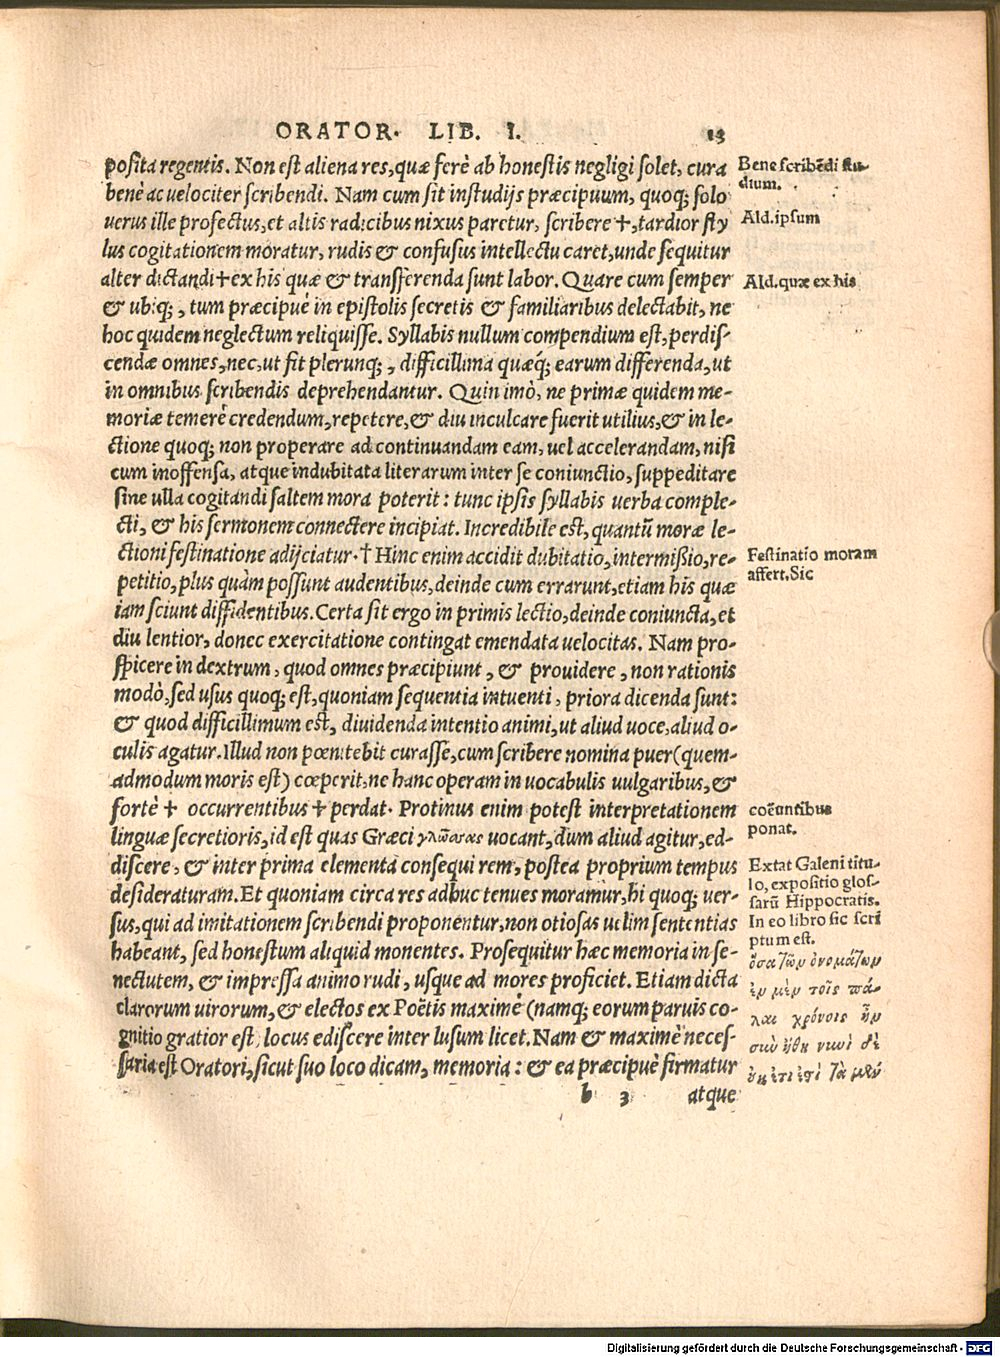 ORATOR. LIB. I. 13
posita regentis. Non est aliena res, quæ ferè ab honestis negligi solet, cura
benè ac velociter scribendi. Nam cum sit in studijs præcipuum, quoq; solo
uerus ille profectus, et altis radicibus nixus paretur, scribere †, tardior sty
lus cogitationem moratur, rudis & confusus intellectu caret, unde sequitur
alter dictandi † ex his quæ & transferenda sunt labor. Quare cum semper
& ubiq;, tum præcipuè in epistolis secretis & familiaribus delectabit, ne
hoc quidem neglectum reliquisse. Syllabis nullum compendium est, perdis-
cendæ omnes, nec, ut fit plerunq;, difficillima quæq; earum differenda, ut
in omnibus scribendis deprehendantur. Quin imò, ne primæ quidem me-
moriæ temerè credendum, repetere, & diu inculcare fuerit utilius, & in le-
ctione quoq; non properare ad continuandam eam, uel accelerandam, nisi
cum inoffensa, atque indubitata literarum inter se coniunctio, suppeditare
sine ulla cogitandi saltem mora poterit: tunc ipsis syllabis uerba comple-
cti, & his sermonem connectere incipiat. Incredibile est, quantũ moræ le-
ctioni festinatione adijciatur. † Hinc enim accidit dubitatio, intermißio, re-
petitio, plus quàm possunt audentibus, deinde cum errarunt, etiam his quæ
iam sciunt diffidentibus. Certa sit ergo in primis lectio, deinde coniuncta, et
diu lentior, donec exercitatione contingat emendata uelocitas. Nam pro-
spicere in dextrum, quod omnes præcipiunt, & prouidere, non rationis
modò, sed usus quoq; est, quoniam sequentia intuenti, priora dicenda sunt:
& quod difficillimum est, diuidenda intentio animi, ut aliud uoce, aliud o-
culis agatur. Illud non pœnitebit curasse, cum scribere nomina puer (quem-
admodum moris est) cœperit, ne hanc operam in uocabulis uulgaribus, &
fortè † occurrentibus † perdat. Protinus enim potest interpretationem
linguæ secretioris, id est quas Græci γλώσσας uocant, dum aliud agitur, ed-
discere, & inter prima elementa consequi rem, postea proprium tempus
desideraturam. Et quoniam circa res adhuc tenues moramur, hi quoq; uer-
sus, qui ad imitationem scribendi proponentur, non otiosas uelim sententias
habeant, sed honestum aliquid monentes. Prosequitur hæc memoria in se-
nectutem, & impressa animo rudi, usque ad mores proficiet. Etiam dicta
clarorum uirorum, & electos ex Poëtis maximè (namq; eorum paruis co-
gnitio gratior est) locus ediscere inter lusum licet. Nam & maximè neces-
saria est Oratori, sicut suo loco dicam, memoria: & ea præcipuè firmatur
b 3 atque
Bene scribẽdi stu-
dium.
Ald. ipsum
Ald. quæ ex his
Festinatio moram
affert, Sic
coëuntibus
ponat.
Extat Galeni titu-
lo, expositio glos-
sarũ Hippocratis.
In eo libro sic scri
ptum est.
ὅσα τῶν ὀνομάτων
ἐν μὲν τοῖς πά-
λαι χρόνοις ἦν
συνήθη νυνὶ δὲ
οὐκ ἔτι ἐστὶ τὰ μὲν